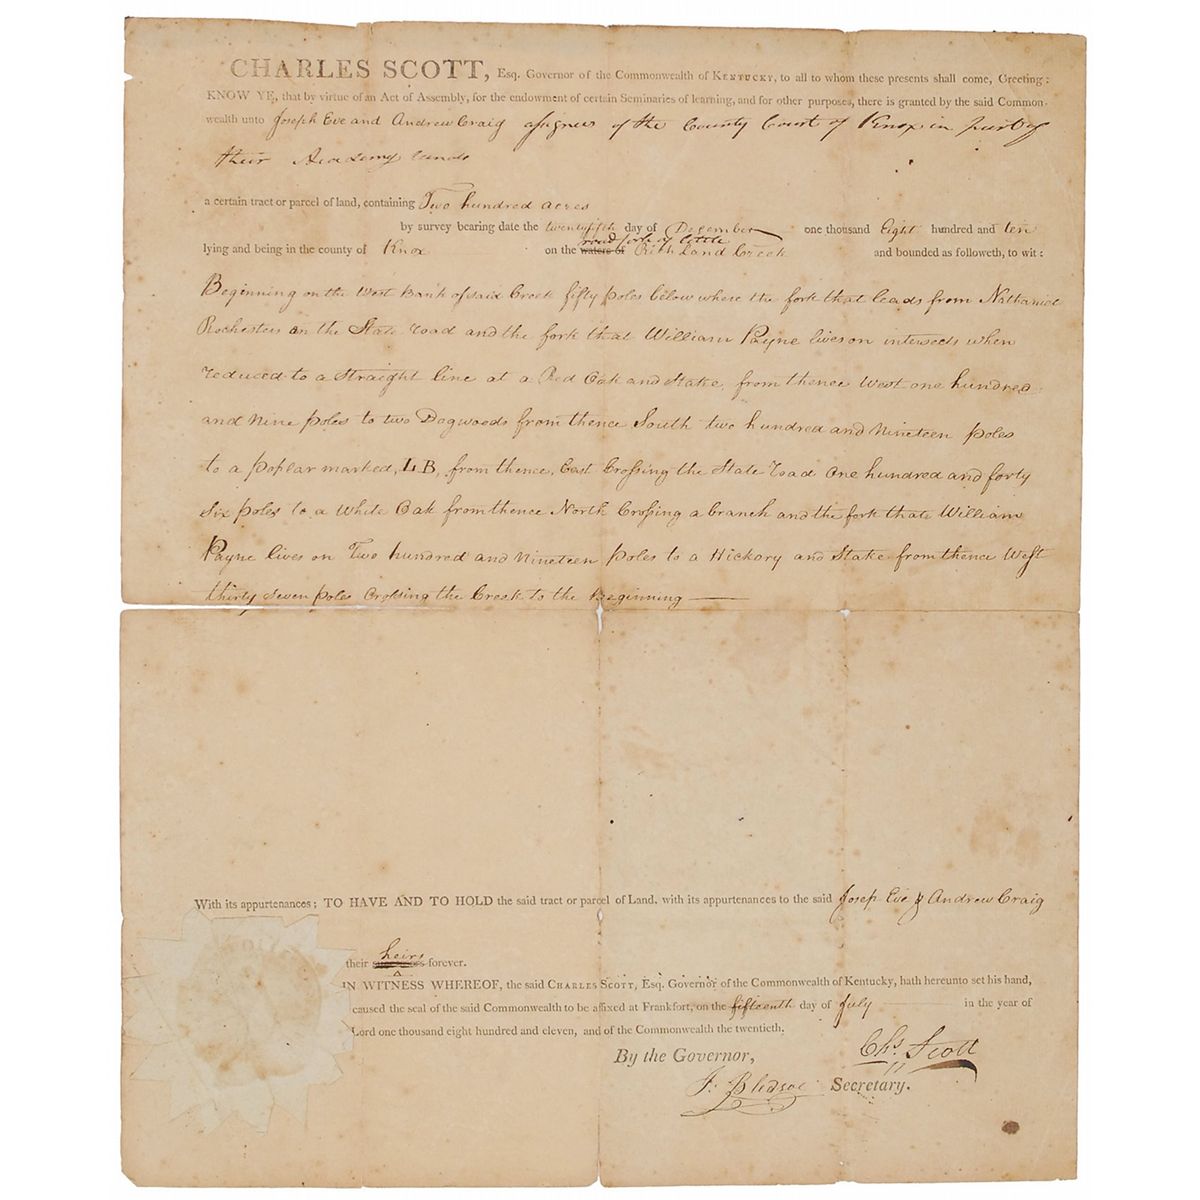 CHARLES SCOTT, Esq. Governor of the Commonwealth of KENTUCKY, to all to whom these presents shall come, Greeting:
KNOW YE, that by virtue of an Act of Assembly, for the endowment of certain Seminaries of learning, and for other purposes, there is granted by the said Common-
wealth unto Joseph Eve and Andrew Craig assignees of the County Court of Knox in part of
their Academy lands
a certain tract or parcel of land, containing Two hundred acres
by survey bearing date the twentyfifth day of December one thousand Eight hundred and ten
road fork of little
lying and being in the county of Knox on the waters of Rich Land Creek and bounded as followeth, to wit:
Beginning on the West Bank of said Creek fifty poles below where the fork that leads from Nathaniel
Rochesters on the State road and the fork that William Payne lives on intersects when
reduced to a straight line at a Red Oak and Stake, from thence West one hundred
and Nine poles to two Dogwoods from thence South two hundred and Nineteen poles
to a poplar marked, LB, from thence, East Crossing the State road One hundred and forty
six poles to a White Oak from thence North Crossing a branch and the fork that William
Payne lives on Two hundred and Nineteen poles to a Hickory and Stake from thence West
thirty seven poles Crossing the Creek to the Beginning
With its appurtenances; TO HAVE AND TO HOLD the said tract or parcel of Land, with its appurtenances to the said Josep Eve & Andrew Craig
heirs
their forever.
IN WITNESS WHEREOF, the said CHARLES SCOTT, Esq. Governor of the Commonwealth of Kentucky, hath hereunto set his hand,
caused the seal of the said Commonwealth to be affixed at Frankfort, on the fifteenth day of July in the year of
Lord one thousand eight hundred and eleven, and of the Commonwealth the twentieth.
By the Governor, Chs. Scott
J. Bledsoe Secretary.